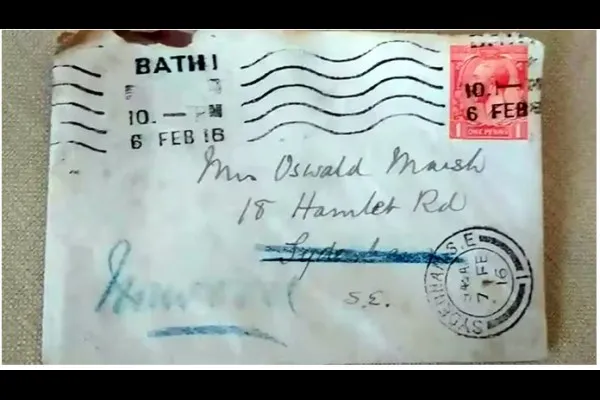 BATH 1
10. — PM
6 FEB 16
BATH
10. —
6 FEB 16
1 ONE PENNY 1
Mrs Oswald Marsh
18 Hamlet Rd
Sydenham
S.E.
SYDENHAM S.E.
7 FE
16